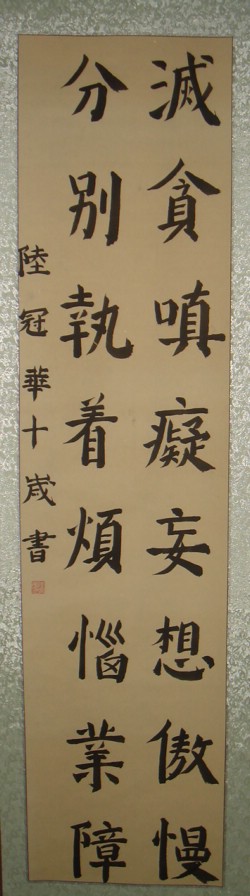 滅貪嗔癡妄想傲慢
分別執着煩惱業障
陸冠華十歲書